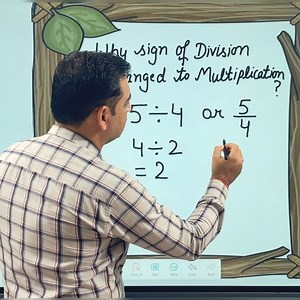 Why sign of Division
anged to Multiplication
?
5÷4 or 5/4
4÷2
= 2